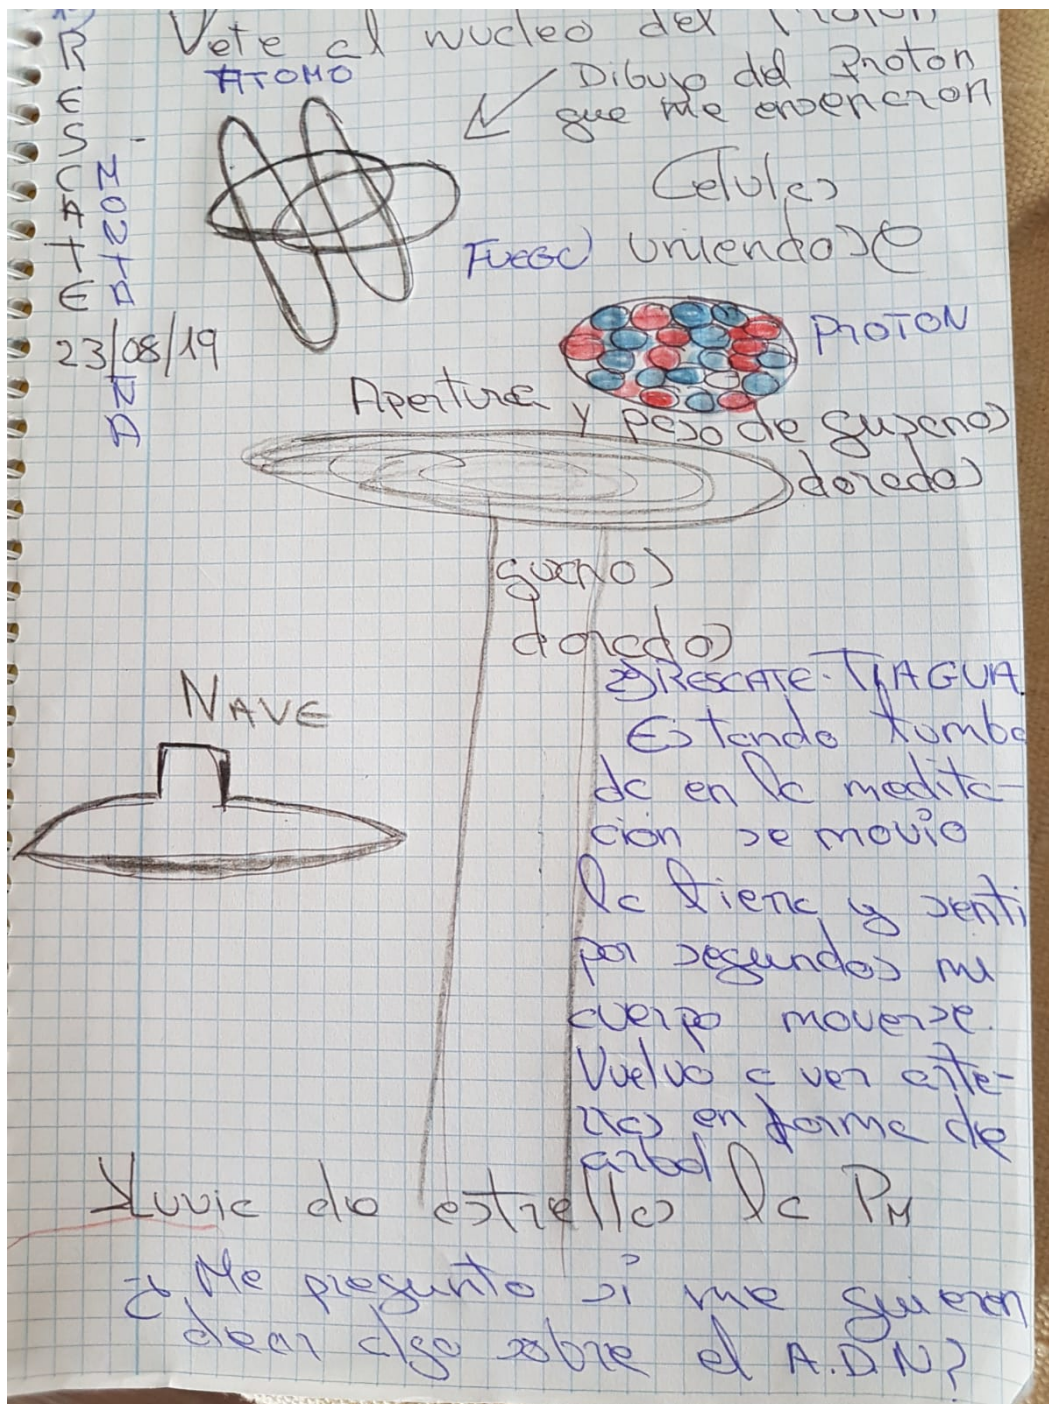 RESCATE
23/08/19
Vete al nucleo del Proton
ATOMO
Dibujo del Proton
que me ensenaron
Celulas
uniendose
FUEGO
PROTON
Apertura y paso de gusanos
dorados
gusanos
dorados
NAVE
2º) RESCATE. TIAGUA.
Estando tumba
da en la medita-
ción se movio
la tierra y senti
por segundos mi
cuerpo moverse.
Vuelvo a ver arte-
rias en forma de
arbol
Lluvia de estrellas la PM
¿Me pregunto si me quieren
decir algo sobre el A.D.N?